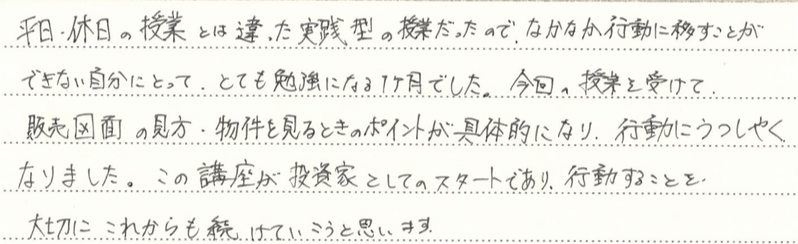 平日・休日の授業とは違った実践型の授業だったので、なかなか行動に移すことが
できない自分にとって、とても勉強になる1ヶ月でした。今回の授業を受けて、
販売図面の見方・物件を見るときのポイントが具体的になり、行動にうつしやく
なりました。この講座が投資家としてのスタートであり、行動することを
大切にこれからも続けていこうと思います